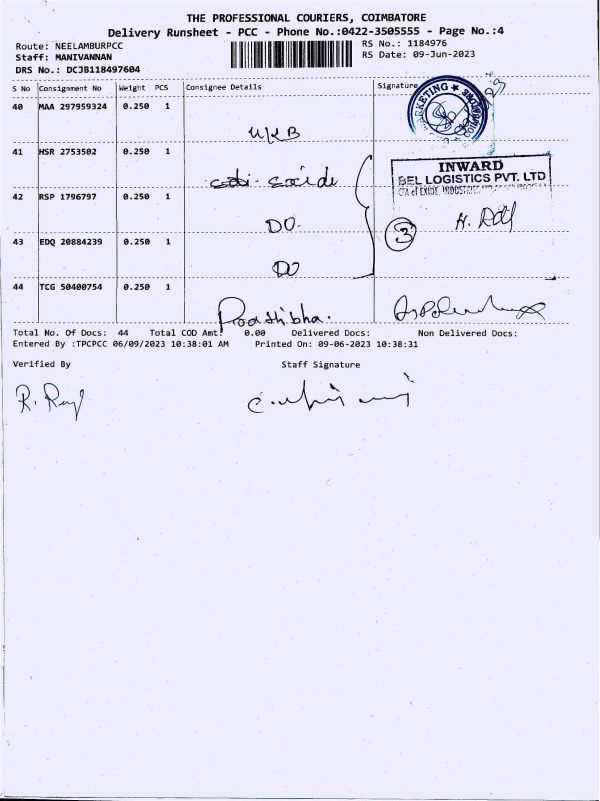 THE PROFESSIONAL COURIERS, COIMBATORE
Delivery Runsheet - PCC - Phone No.:0422-3505555 - Page No.:4
Route: NEELAMBURPCC
RS No.: 1184976
Staff: MANIVANNAN
RS Date: 09-Jun-2023
DRS No.: DCJB118497604
S No Consignment No Weight PCS Consignee Details Signature
40 MAA 297959324 0.250 1
MARKETING
41 HSR 2753502 0.250 1
INWARD
BEL LOGISTICS PVT. LTD
42 RSP 1796797 0.250 1
DO.
3
43 EDQ 20884239 0.250 1
DO
44 TCG 50400754 0.250 1
Total No. Of Docs: 44 Total COD Amt: 0.00 Delivered Docs: Non Delivered Docs:
Entered By :TPCPCC 06/09/2023 10:38:01 AM Printed On: 09-06-2023 10:38:31
Verified By Staff Signature